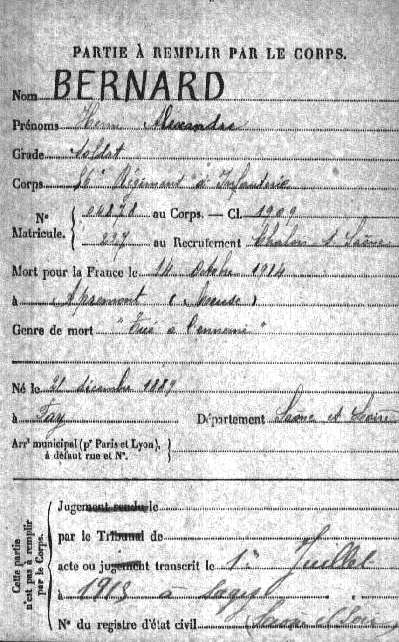 PARTIE À REMPLIR PAR LE CORPS.
Nom BERNARD
Prénoms Henri Alexandre
Grade soldat
Corps 56e Régiment d'Infanterie
N° Matricule. 04878 au Corps. — Cl. 1909
227 au Recrutement Chalon-s-Saône
Mort pour la France le 14 octobre 1914
à Apremont (Meuse)
Genre de mort "Tué à l'ennemi"
Né le 21 décembre 1889
à Fay Département Saône et Loire
Arr' municipal (p' Paris et Lyon),
à défaut rue et N°.
Cette partie n'est pas à remplir par le Corps.
Jugement rendu le
par le Tribunal de
acte ou jugement transcrit le 1er Juillet
à 1915 à
N° du registre d'état civil (Saône & Loire)